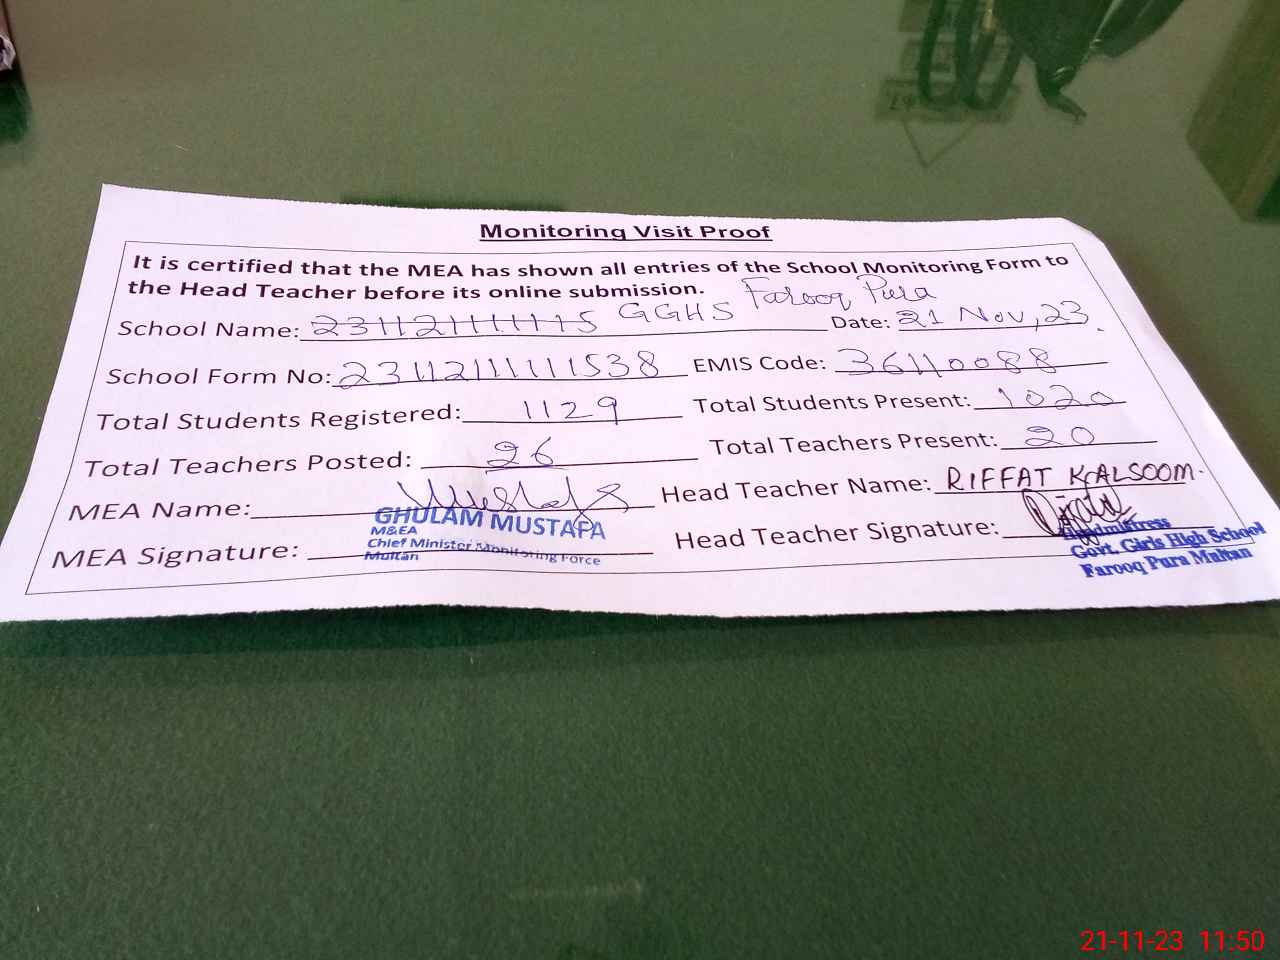 Monitoring Visit Proof
It is certified that the MEA has shown all entries of the School Monitoring Form to
the Head Teacher before its online submission.
School Name: 231121111115 GGHS Farooq Pura Date: 21 Nov, 23.
School Form No: 23112111111538 EMIS Code: 36110088
Total Students Registered: 1129 Total Students Present: 1020
Total Teachers Posted: 26 Total Teachers Present: 20
MEA Name: Head Teacher Name: RIFFAT KALSOOM.
GHULAM MUSTAFA
M&EA
Chief Minister Monitoring Force
Multan
MEA Signature: Head Teacher Signature:
Headmistress
Govt. Girls High School
Farooq Pura Multan
21-11-23 11:50